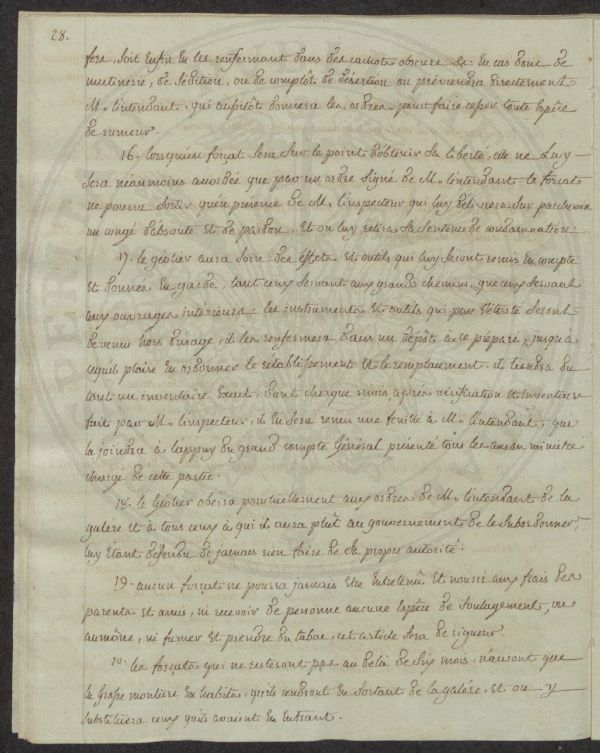 28.
fers, soit enfin en les renfermant dans des cachots obscurs &c. en cas donc de
mutinerie, de sédition, ou de complôt de désertion on préviendra directement
M.r l'intendant, qui aussitôt donnera les ordres pour faire cesser toute espèce
de rumeur.
16. lorsqu'un forçat sera sur le point d'obtenir sa liberté, elle ne luy
sera néanmoins accordée que par un ordre signé de M.r l'intendant. le forcat
ne pourra sortir qu'en présence de M.r l'inspecteur qui luy délivrera sur parchemin
un congé d'absoute et de pardon, et on luy retira sa sentence de condamnation.
17. le géolier aura soin des effets et outils qui luy seront remis en compte
et donnés en garde, tant ceux servant aux grands chemins, que ceux servant
aux ouvrages intérieurs: les instruments et outils qui par vétusté seront
devenus hors d'usage, il les renfermera dans un dépôt à ce préparé, jusqu'à
ce qu'il plaise en ordonner le rétablissement et le remplacement. il tiendra du
tout un inventaire exact, dont chaque mois, après vérification et inventaire
fait par M.r l'inspecteur, il en sera remis une feuille à M.r l'intendant, que
la joindra à l'appuy du grand compte général présenté tous les ans au ministre
chargé de cette partie.
18. le géolier obéira ponctuellement aux ordres de M.r l'intendant de la
galère et à tous ceux à qui il aura plût au gouvernement de le subordonner,
luy étant défendu de jamais rien faire de sa propre autorité.
19. aucun forçat ne pourra jamais etre entretenû et nourri aux frais des
parents et amis, ni recevoir de personne aucune espèce de soulagement, ou
aumône, ni fumer et prendre du tabac, cet article sera de rigueur.
20. les forçats qui ne resteront pas au delà de six mois, n'auront que
la grosse monture en habits, qu'ils rendront en sortant de la galère, et on y
substituera ceux qu'ils avaient en entrant.